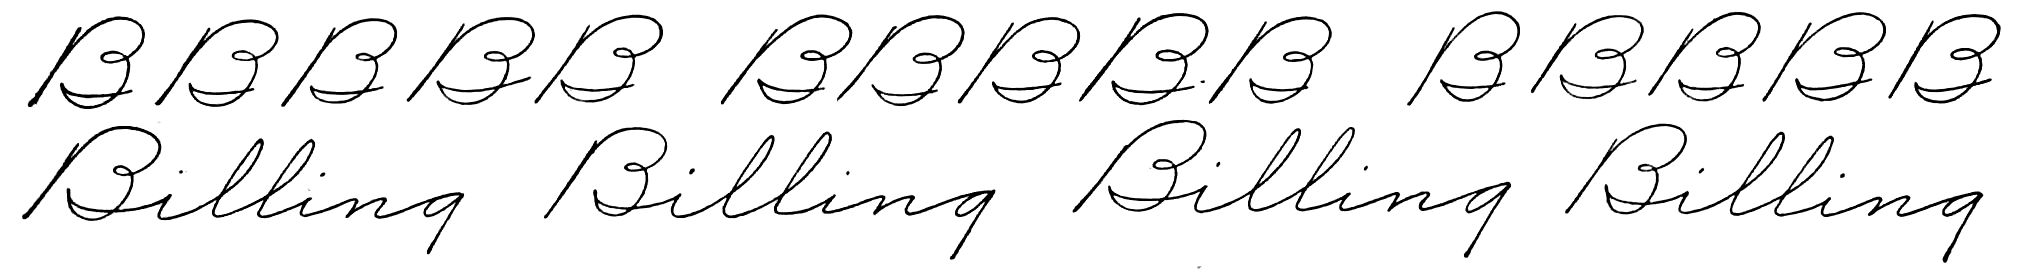 B B B B B B B B B B B B B B B
Billing Billing Billing Billing